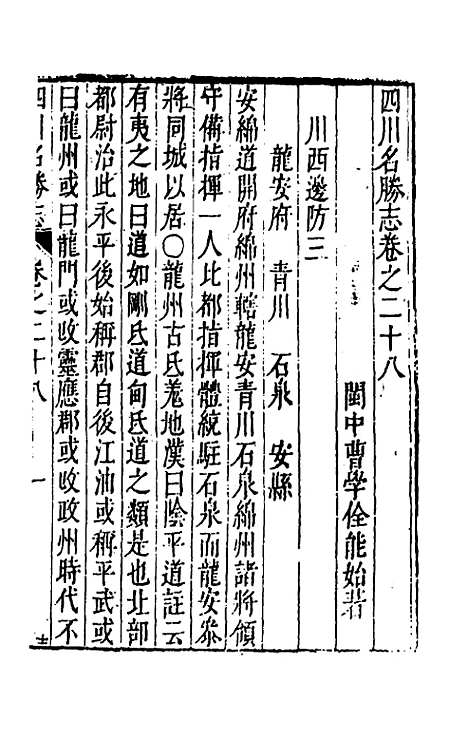 四川名勝志卷之二十八
閩中曹學佺能始著
川西邊防三
龍安府　青川　石泉　安縣
安綿道開府綿州轄龍安青川石泉綿州諸將領
守備指揮一人比都指揮體統駐石泉而龍安叅
將同城以居○龍州古氐羗地漢曰陰平道註云
有夷之地曰道如剛氐道甸氐道之類是也北部
都尉治此永平後始稱郡自後江油或稱平武或
曰龍州或曰龍門或改靈應郡或改政州時代不
四川名勝志　卷之二十八　一